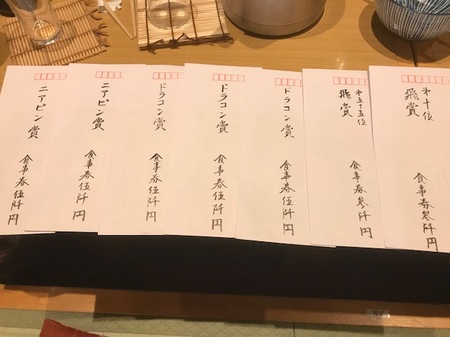 第十位
飛賞
食事券参阡円
飛賞
食事券参阡円
ドラコン賞
食事券伍阡円
ドラコン賞
食事券伍阡円
ドラコン賞
食事券伍阡円
ニアピン賞
食事券伍阡円
ニアピン賞
食事券伍阡円